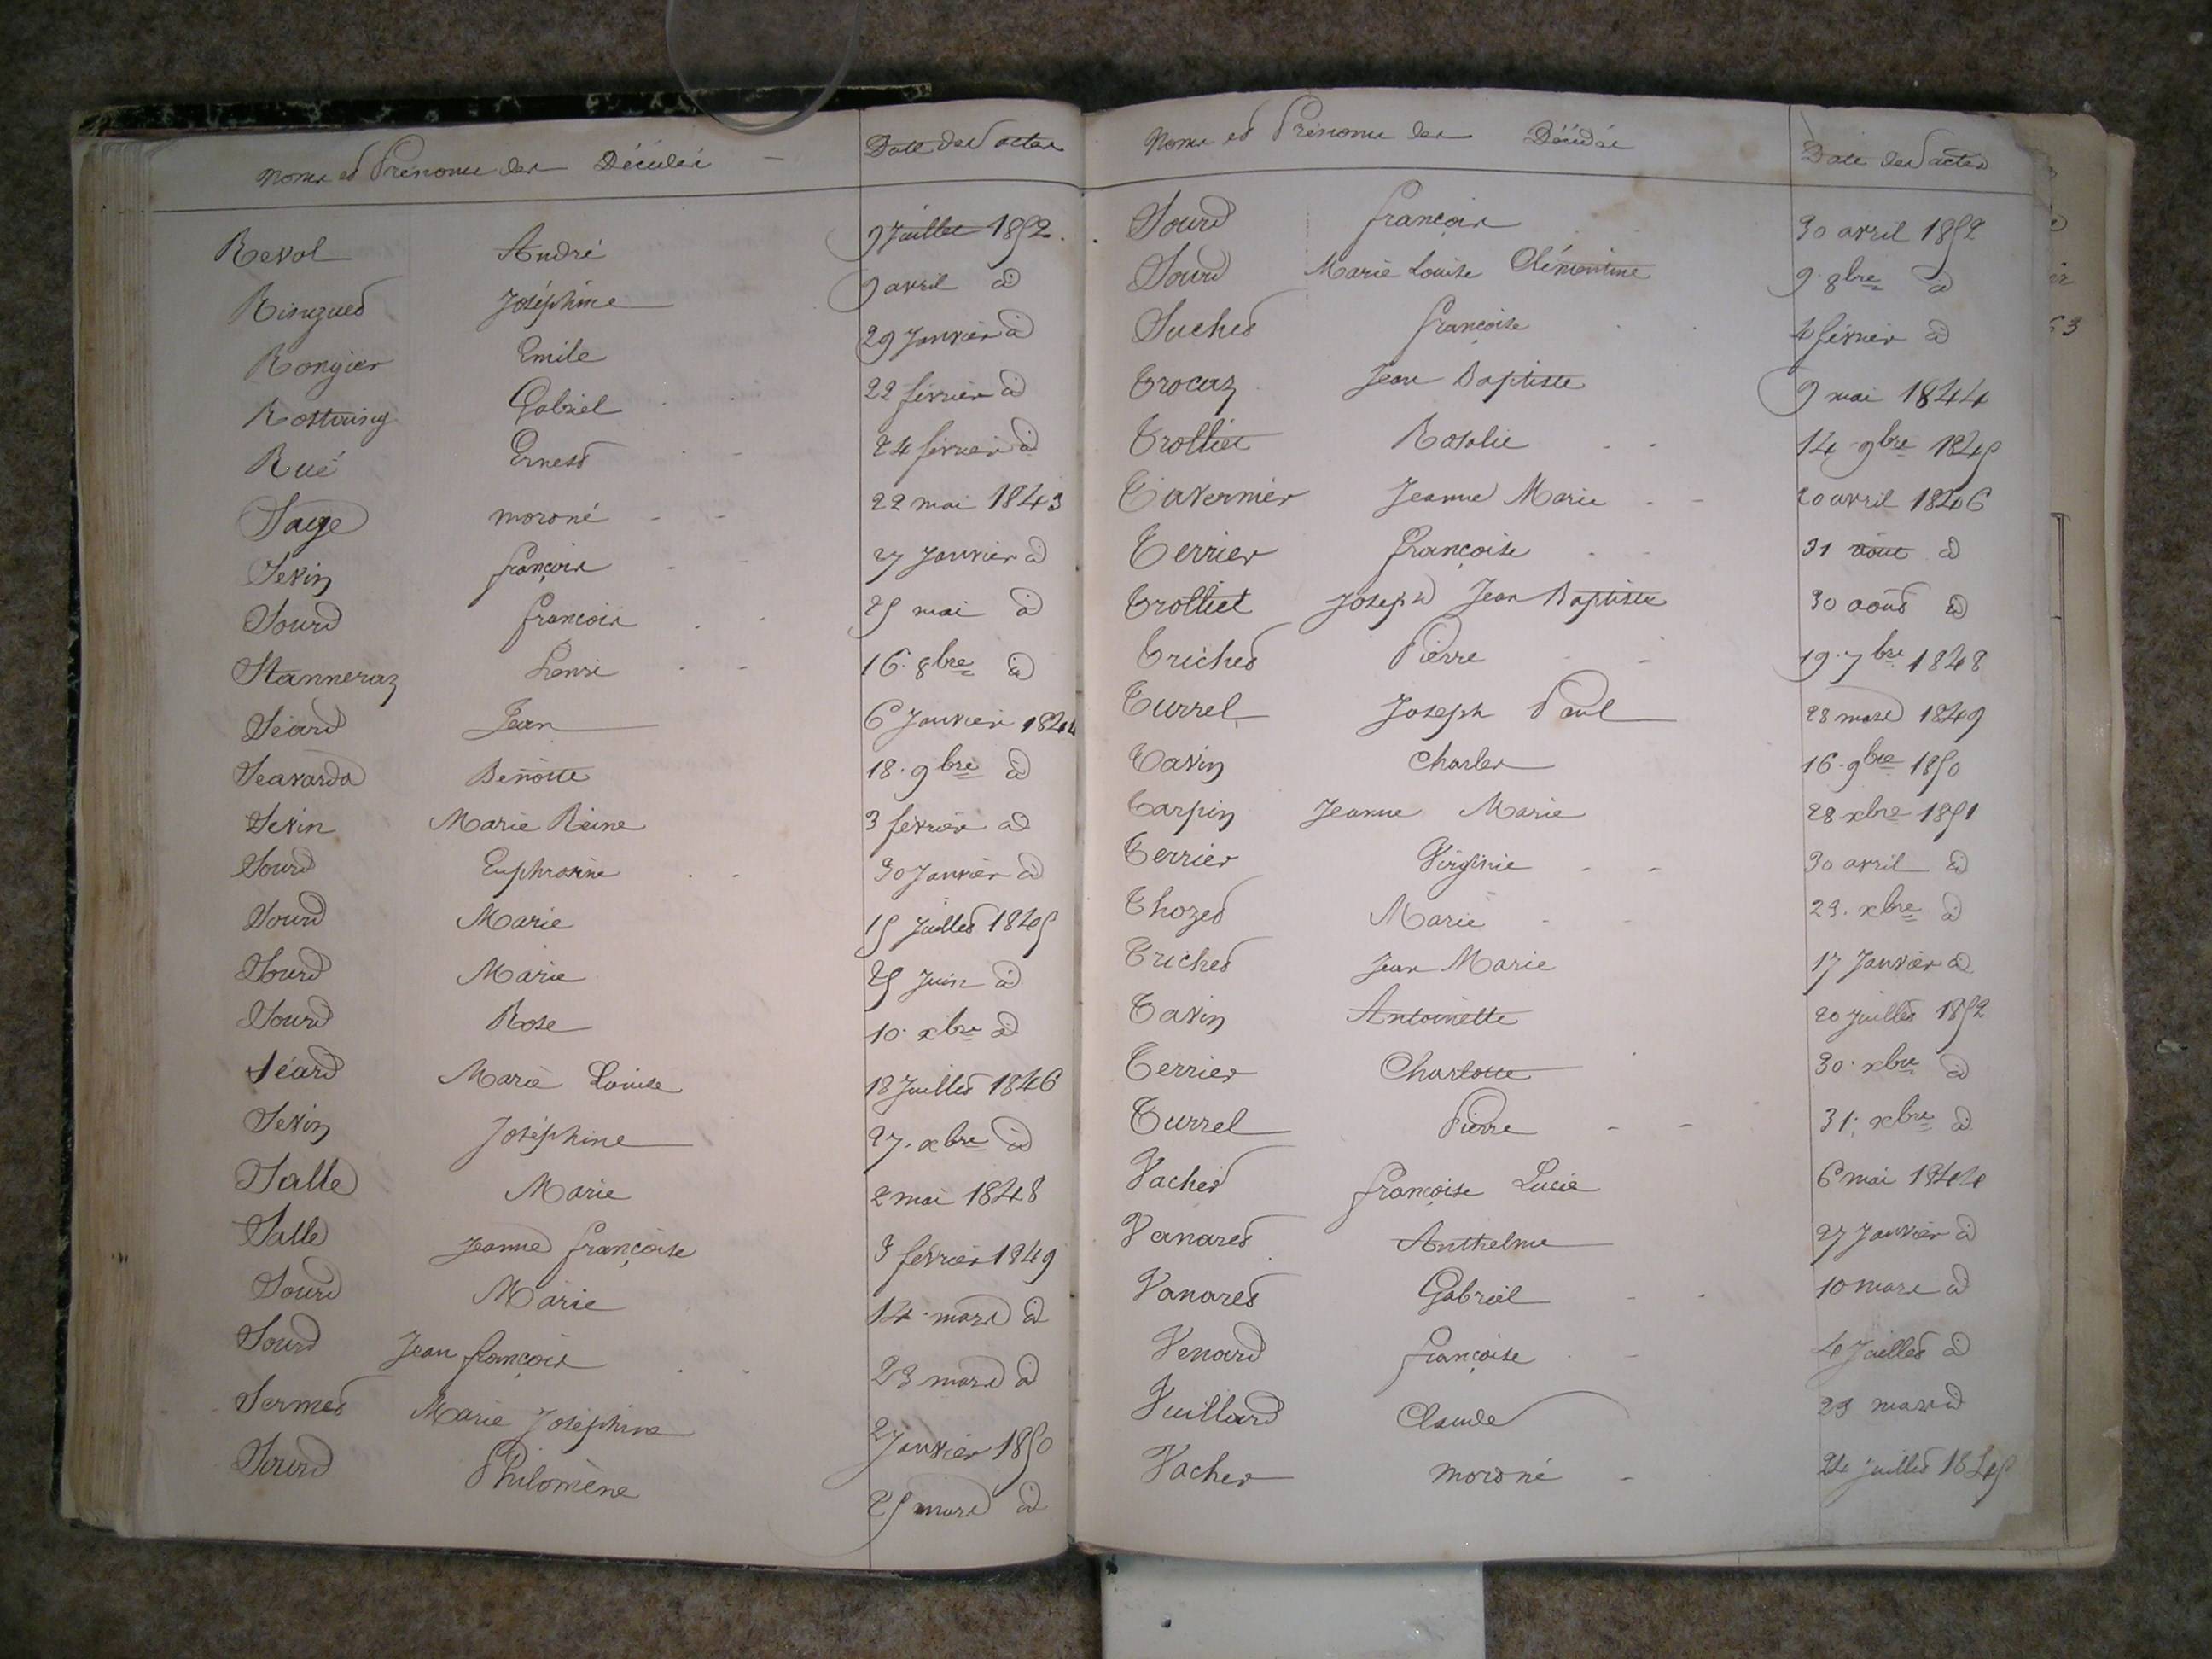 Noms et Prénoms des Décédés Date des actes
Revol André 9 Juillet 1852
Ringued Joséphine 9 avril id
Rongier Emile 29 Janvier id
Rostaing Gabriel 22 février id
Rué Ernest 24 février id
Sage mor né 22 mai 1843
Sevin françois 27 Janvier id
Sourd françois 25 mai id
Stanneraz henri 16. 8bre id
Séard Jean 6 Janvier 1844
Seavarda Benoite 18. 9bre id
Sevin Marie Reine 3 février id
Sourd Euphrosine 30 Janvier id
Sourd Marie 15 Juillet 1845
Sourd Marie 25 Juin id
Sourd Rose 10. xbre id
Séard Marie Louise 18 Juillet 1846
Sevin Joséphine 27. xbre id
Salle Marie 2 mai 1848
Salle Jeanne françoise 3 février 1849
Sourd Marie 14. mars id
Sourd Jean françois 23 mars id
Sermet Marie Joséphine 2 Janvier 1850
Sourd Philomène 25 mars id
Noms et Prénoms des Décédés Date des actes
Sourd françois 30 avril 1852
Sourd Marie Louise Clémentine 9. 8bre id
Suchet françoise 4 février id
Trocaz Jean Baptiste 9 mai 1844
Trolliet Rosalie 14 9bre 1845
Tavernier Jeanne Marie 20 avril 1846
Terrier françoise 31 août id
Trolliet Joseph Jean Baptiste 30 août id
Trichet Pierre 19. 7bre 1848
Turrel Joseph Paul 28 mars 1849
Tavin Charles 16. 9bre 1850
Tarpin Jeanne Marie 28 xbre 1851
Terrier Virginie 30 avril id
Thozet Marie 29. xbre id
Trichet Jean Marie 17 Janvier id
Tavin Antoinette 20 Juillet 1852
Terrier Charlotte 30. xbre id
Turrel Pierre 31. xbre id
Vacher françoise Lucie 6 mai 1844
Vanaret Anthelme 27 Janvier id
Vanaret Gabriel 10 mars id
Venard françoise 4 Juillet id
Vuillard Claude 23 mars id
Vacher mor né 24 juillet 1845